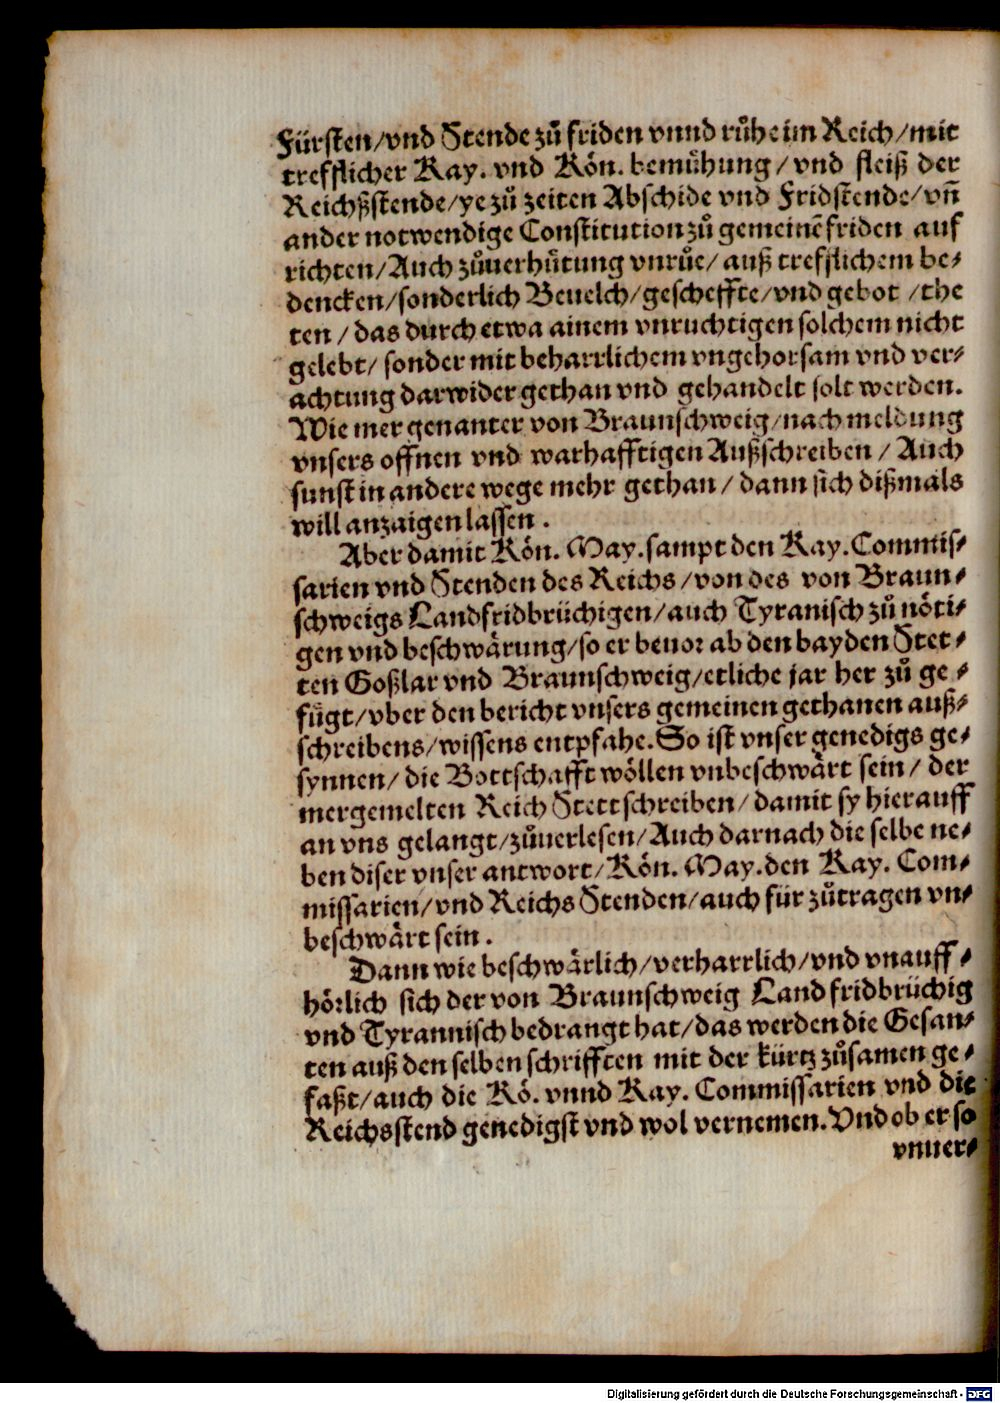 Fürsten/vnd Stende zů friden vnnd růhe im Reich/mit
trefflicher Kay. vnd Kön. bemühung/ vnd fleiß der
Reichßstende/ye zů zeiten Abschide vnd Fridstende/vñ
ander notwendige Constitution zů gemeinẽ friden auf
richten/Auch zůuerhütung vnrůe/ auß trefflichem be⸗
dencken/sonderlich Beuelch/gescheffte/vnd gebot /the
ten / das durch etwa ainem vnruchtigen solchem nicht
gelebt/ sonder mit beharrlichem vngehorsam vnd ver⸗
achtung darwider gethan vnd gehandelt solt werden.
Wie mer genanter von Braunschweig/nach meldung
vnsers offnen vnd warhafftigen Außschreiben / Auch
sunst in andere wege mehr gethan / dann sich dißmals
will anzaigen lassen .
Aber damit Kön. May. sampt den Kay. Commis⸗
sarien vnd Stenden des Reichs /von des von Braun⸗
schweigs Landfridbrüchigen/auch Tyranisch zů nöti⸗
gen vnd beschwärung/so er beuor ab den bayden Stet⸗
ten Goßlar vnd Braunschweig/etliche jar her zů ge⸗
fügt/vber den bericht vnsers gemeinen gethanen auß⸗
schreibens/wissens entpfahe. So ist vnser genedigs ge⸗
synnen/ die Bottschafft wöllen vnbeschwärt sein/ der
mergemelten Reich Stett schreiben/ damit sy hierauff
an vns gelangt/zůuerlesen/Auch darnach die selbe ne⸗
ben diser vnser antwort/ Kön. May. den Kay. Com⸗
missarien/vnd Reichs Stenden/auch für zůtragen vn⸗
beschwärt sein .
Dann wie beschwärlich/verharrlich/vnd vnauff⸗
hörlich sich der von Braunschweig Land fridbrüchig
vnd Tyrannisch bedrangt hat/das werden die Gesan⸗
ten auß den selben schrifften mit der kürtz zůsamen ge⸗
faßt/auch die Kö. vnnd Kay. Commissarien vnd die
Reichsstend genedigst vnd wol vernemen. Vnd ob er so
vnuer⸗
Digitalisierung gefördert durch die Deutsche Forschungsgemeinschaft - DFG